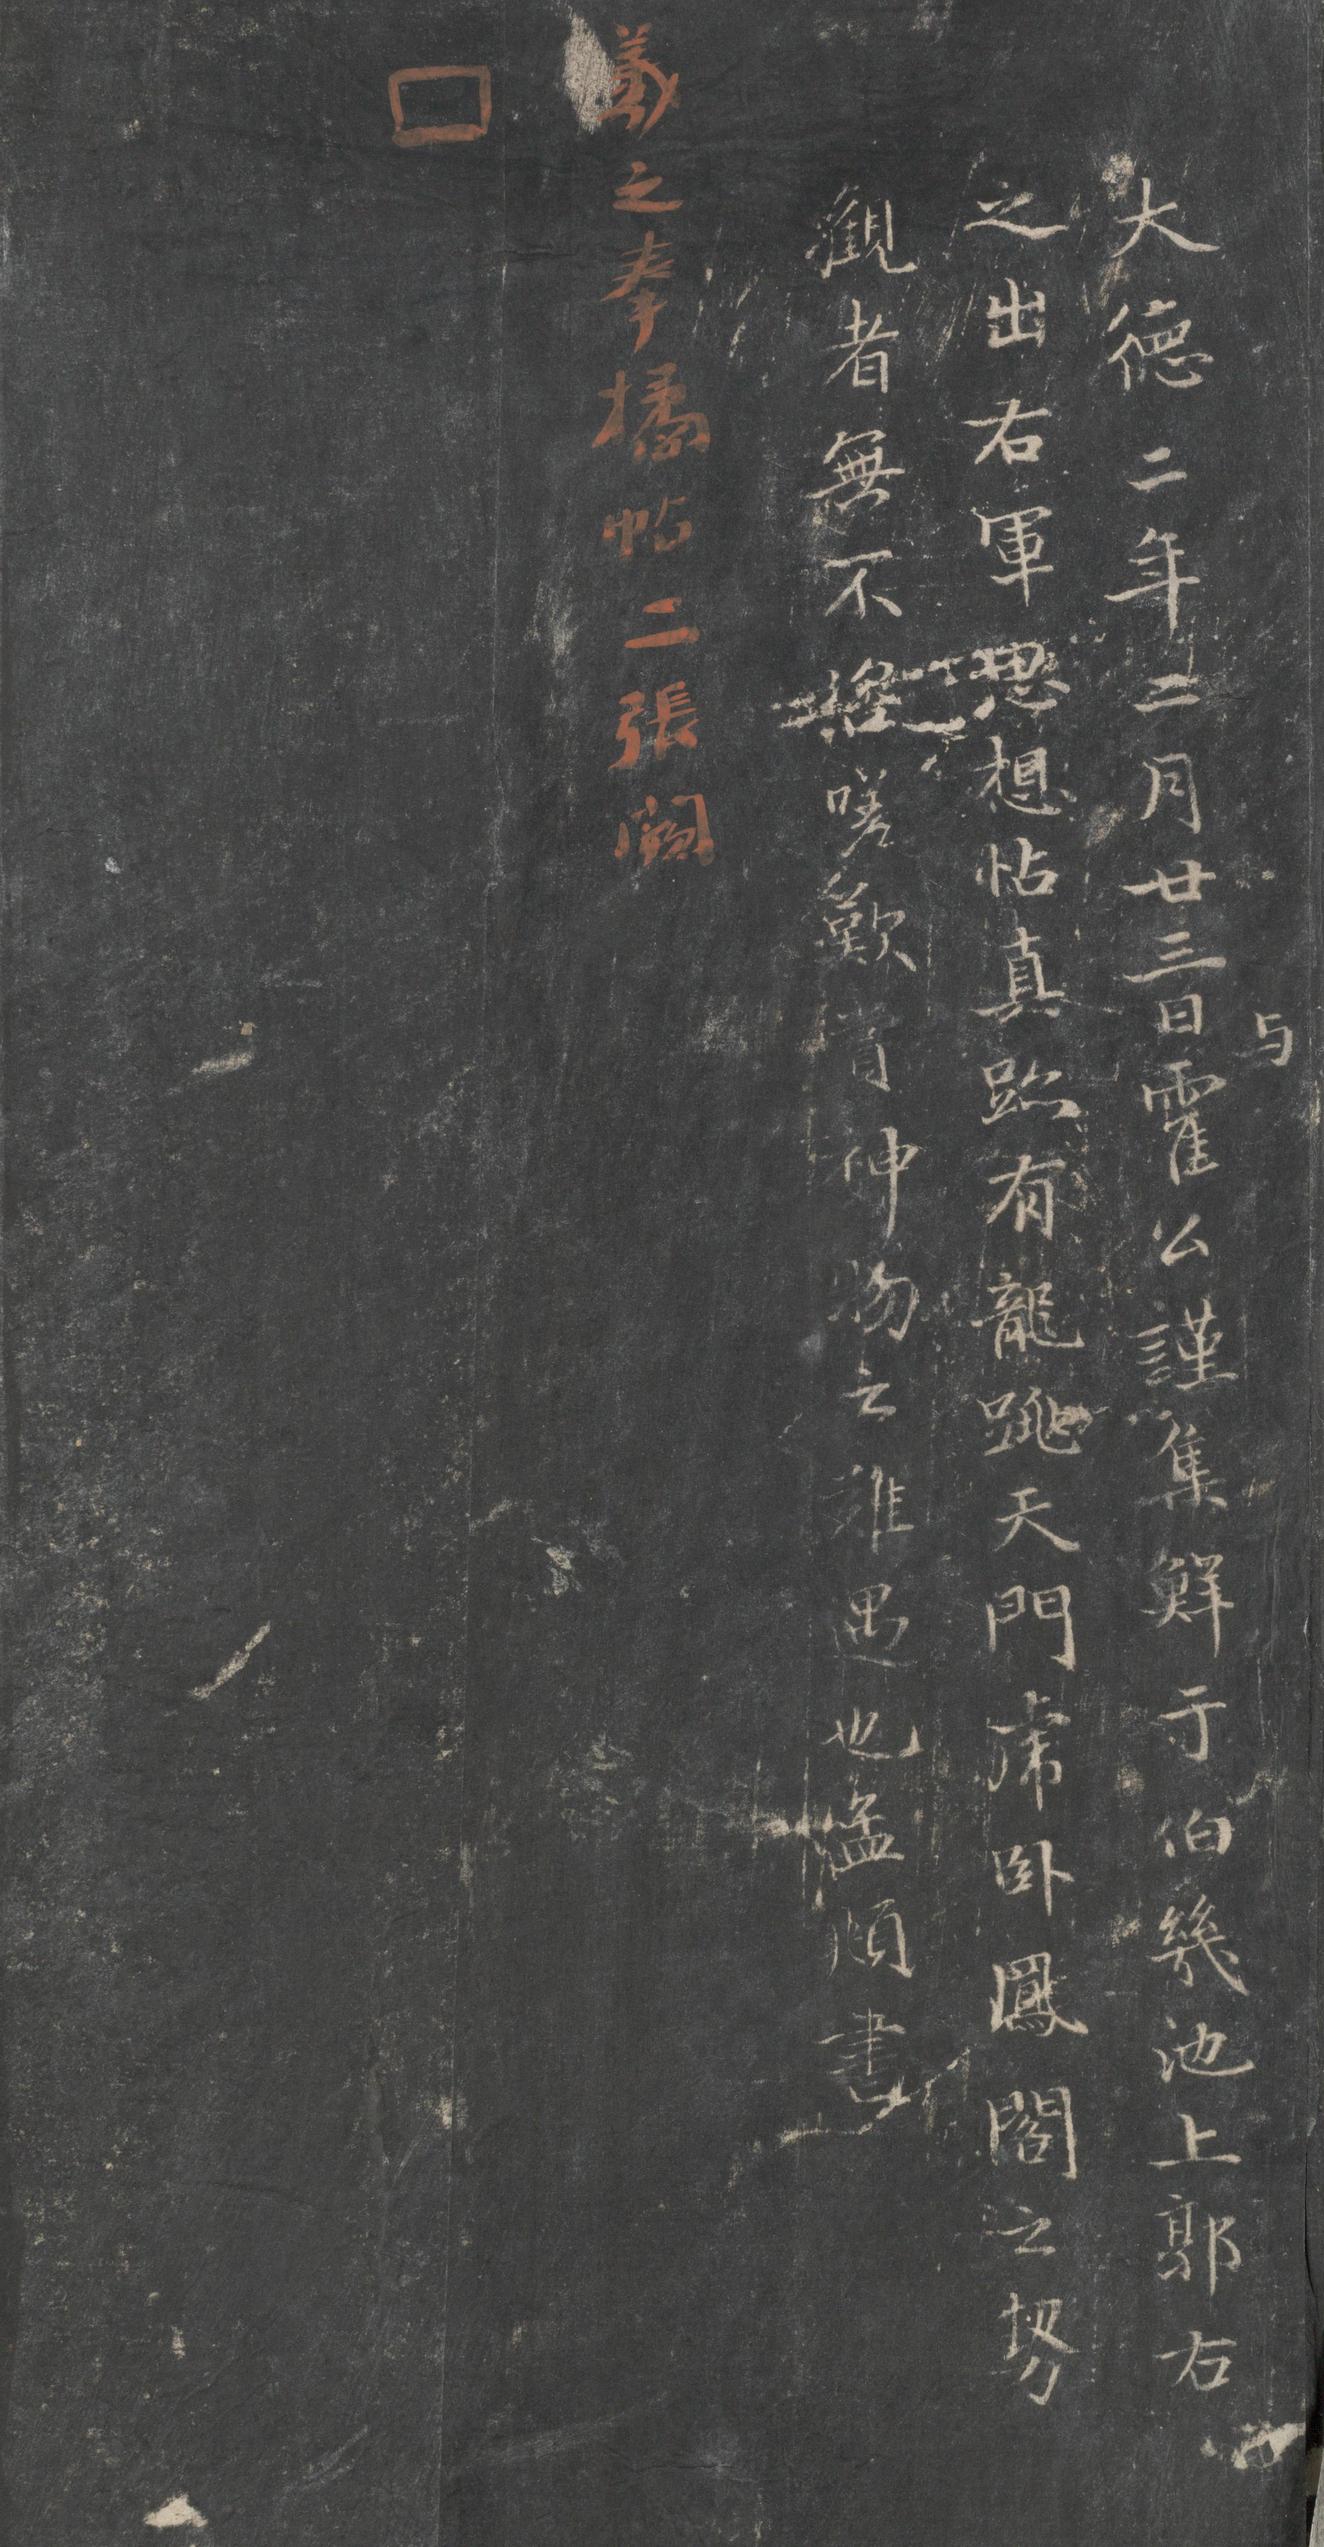 与
大德二年二月廿三日霍公謹集鮮于伯幾池上郭右
之出右軍思想帖真跡有龍跳天門虎卧鳳閣之勢
觀者無不咨嗟歎賞神物之難遇也孟頫書
羲之奉橘帖二張闕